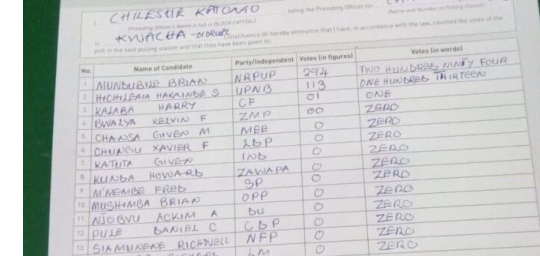 I, CHILESHE KATONGO being the Presiding Officer for
Presiding Officer's Name in full in BLOCK CAPITALS Name and Number of Polling District
in KWACHA - NDOLA hereby announce that I have, in accordance with the law, counted the votes of the
poll in the said polling station and that they have been given to:
No. Name of Candidate Party/Independent Votes (in figures) Votes (in words)
1 MUNDUBILE BRIAN NRPUP 294 TWO HUNDRED NINETY FOUR
2 HICHILEMA HAKAINDE S UPND 113 ONE HUNDRED THIRTEEN
3 KALABA HARRY CF 01 ONE
4 BWALYA KELVIN F ZMP 00 ZERO
5 CHANSA GIVEN M MEE 0 ZERO
6 CHUNGU XAVIER F LDP 0 ZERO
7 KATUTA GIVEN IND 0 ZERO
8 KUNDA HOWARD ZAWAPA 0 ZERO
9 M'MEMBE FRED SP 0 ZERO
10 MUSHIMBA BRIAN OPP 0 ZERO
11 NJOBVU ACKIM A DU 0 ZERO
12 PULE DANIEL C CDP 0 ZERO
13 SIAMUNENE RICHWELL NFP 0 ZERO
RICHARD LM 0 ZERO